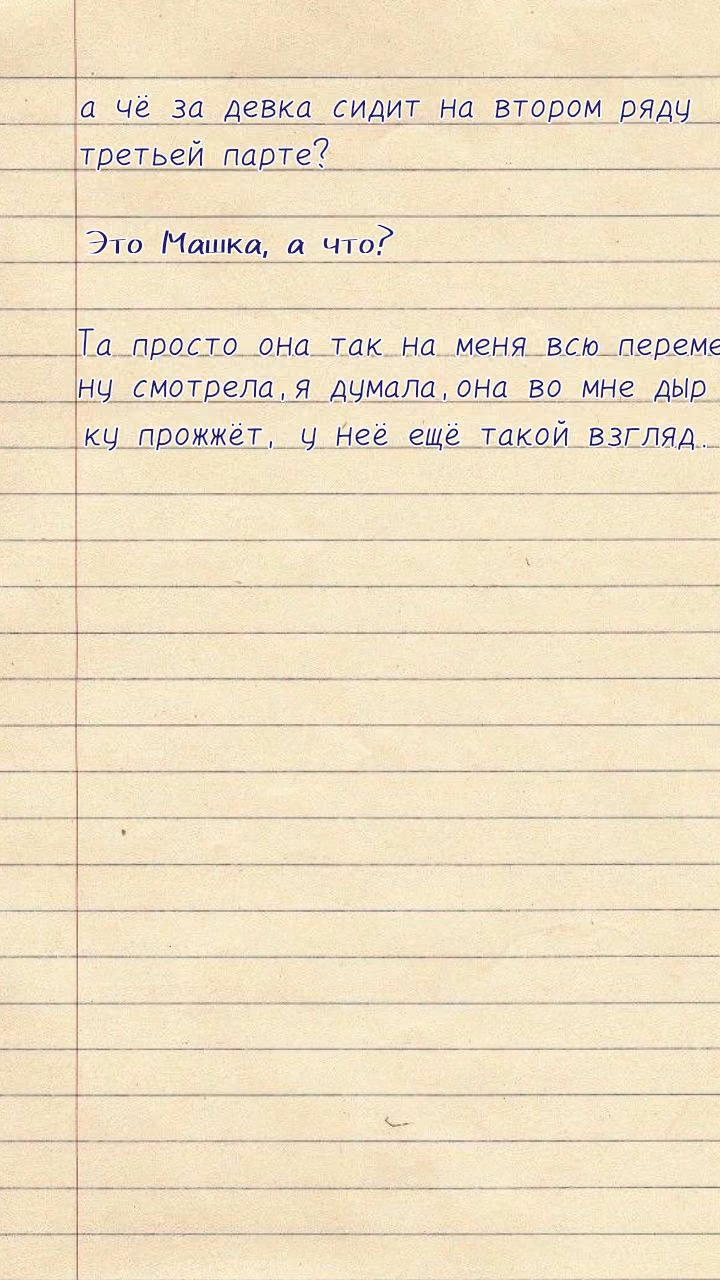 а чё за девка сидит на втором ряду
третьей парте?
Это Машка, а что?
Та просто она так на меня всю переме
ну смотрела,я думала,она во мне дыр
ку прожжёт, у неё ещё такой взгляд.